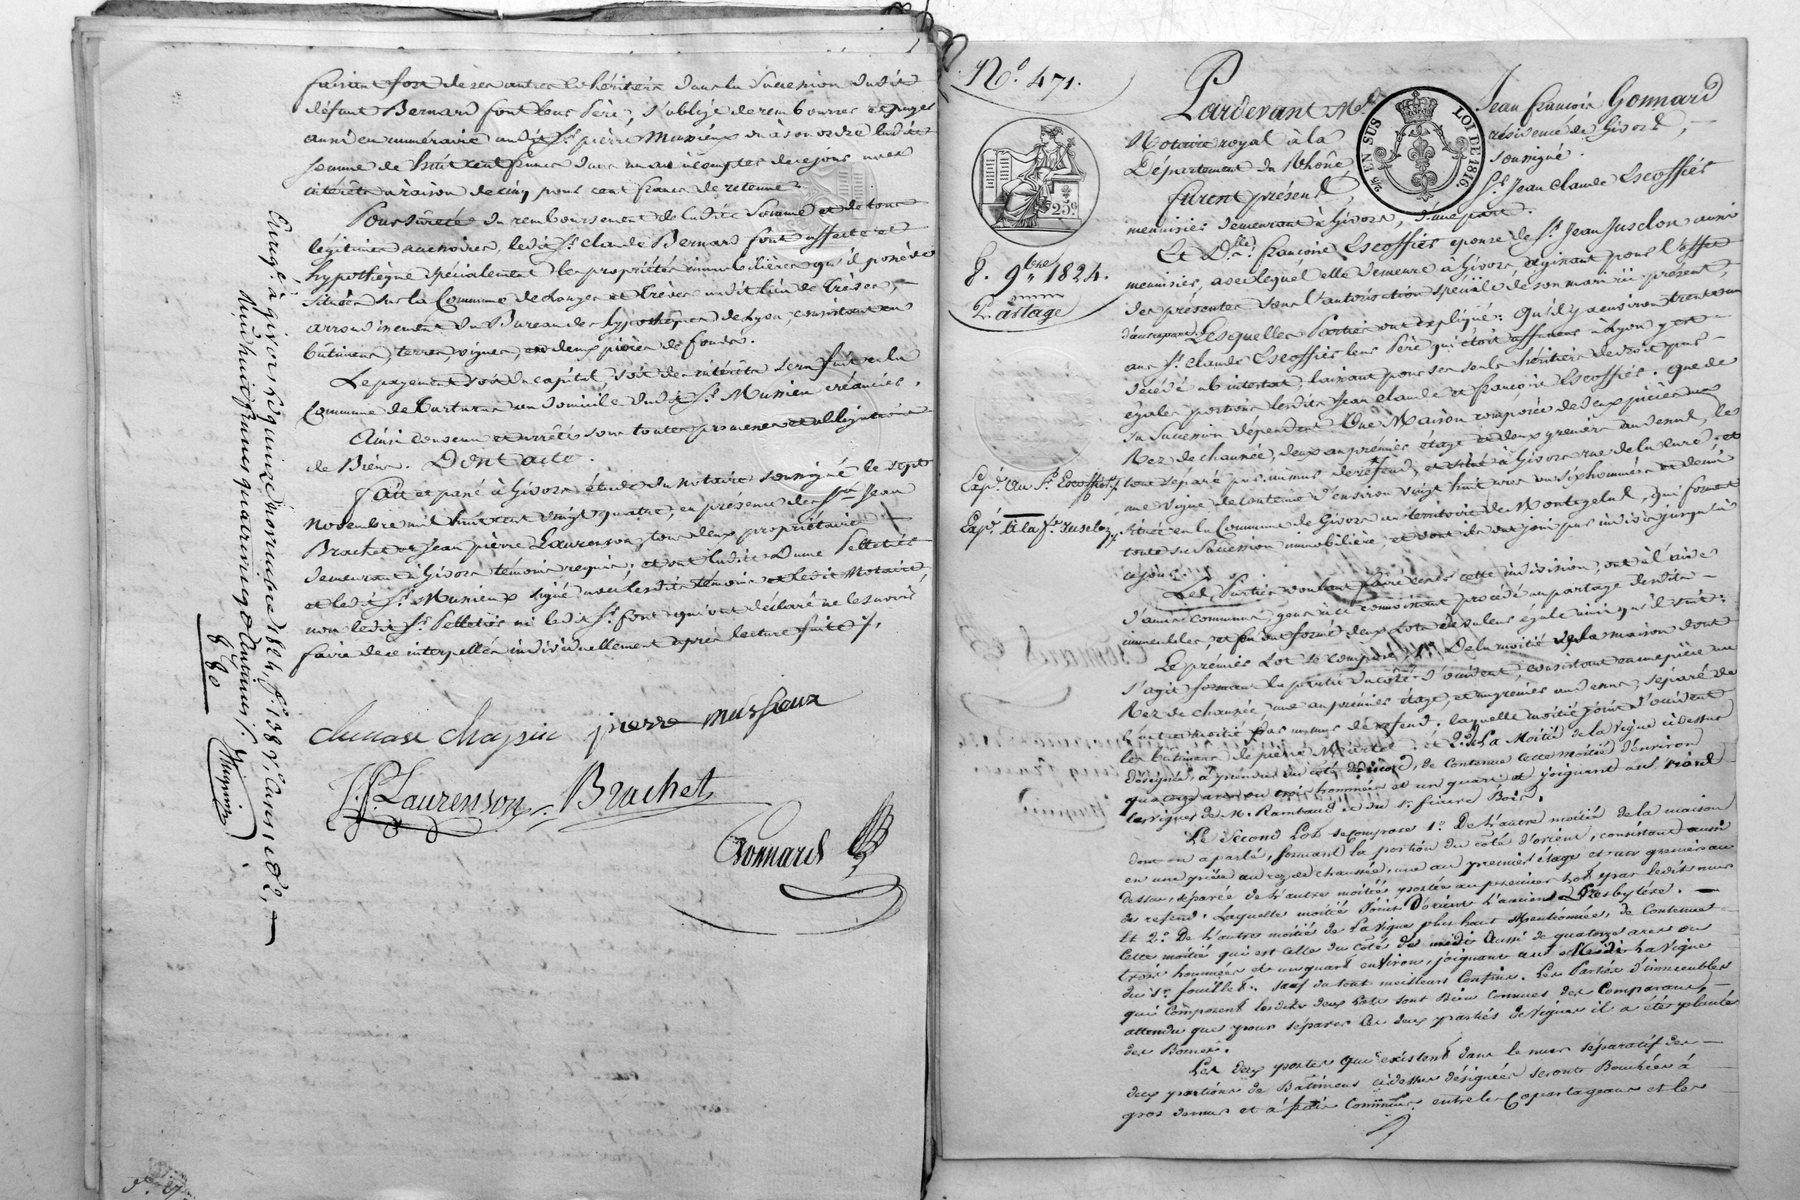 faisant fort de ses autres cohéritiers dans la Succession dudit
défunt Bernard font leur Père, s'oblige de rembourser et payer
aussi en numéraire audit Sr. pierre Mussieux ou à son ordre ladite
somme de huit cent francs dans un an à compter de ce jour avec
intérêts à raison de cinq pour cent francs de retenue.
Pour Sûreté du remboursement de ladite Somme et de tous
légitimes accessoires, ledit Sr. Claude Bernard font affecte et
hypothèque spécialement les propriétés immobilières qu'il possède
situées sur la Commune de Longes et Trèves audit lieu de Trèves,
arrondissement du Bureau des hypothèques de Lyon, consistant en
bâtiment, terres, vignes, en deux pièces de fonds.
Le payement soit du capital, soit des intérêts sera fait en la
Commune de au domicile dudit Sr. Mussieux créancier.
Ainsi convenu et arrêté sous toutes promesses et obligations
de Biens. Dont acte.
fait et passé à Givors étude du notaire soussigné le sept
Novembre mil huit cent vingt quatre, en présence des Srs. Jean
Brachet et Jean pierre Laurenson, tous deux propriétaires
demeurant à Givors témoins requis; et ont ladite Dame Pelletier
et ledit Sr. Mussieux signé avec lesdits témoins et ledit Notaire
non ledit Sr. Pelletier ni ledit Sr. font qui ont déclaré ne le savoir
faire de ce interpellés individuellement après lecture faite.
pierre mussieux
J. P. Laurenson
Brachet
Gonnard
Enreg. à givors, le quinze novembre 1824, fo. 138
huit francs quatrevingt centimes
8 80
No. 471.
8. 9bre 1824.
Partage
Expé. au Sr. Escoffier
Expé. à la fe. Jusclon
Pardevant Me. Jean françois Gonnard
Notaire royal à la résidence de Givors,
Département du Rhône, soussigné.
furent présents, Sr. Jean Claude Escoffier
menuisier demeurant à Givors, d'une part.
Et De. françoise Escoffier épouse de Sr. Jean Jusclon aussi
menuisier, avec lequel elle demeure à Givors, agissant pour l'effet
des présentes sous l'autorisation spéciale de son mari ici présent,
d'autre part. Lesquelles Parties ont expliqué: Qu'il y a environ trente un
ans Sr. Claude Escoffier leur Père qui étoit à Lyon y est
décédé ab intestat, laissant pour ses seuls héritiers de droit par
egales portions lesdits Jean Claude et françoise Escoffier. Que de
sa Succession dépendent Une Maison composée de deux pièces au
Rez de chaussée, deux au premier étage et deux greniers au dessus, le
tout séparé par un mur de refend, et situé à Givors rue de la cure; et
une Vigne de contenue d'environ vingt huit ares ou six hommées et demi
située en la Commune de Givors au territoire de Montgelas, qui forment
toute sa Succession immobilière, et dont ils ont joui par indivis jusqu'à
ce jour.
Les Parties voulant faire cesser cette indivision, ont à l'aide
d'amis communs, procédé au partage desdits
immeubles, et en ont formé deux Lots de valeur égale ainsi qu'il suit:
Le premier Lot se compose 1o. De la moitié de la maison dont
s'agit formant la partie du côté d'occident, consistant en une pièce au
Rez de chaussée, une au premier étage, et un grenier au dessus, séparé de
l'autre moitié par un mur de refend. laquelle moitié joint d'occident
les bâtimens de pierre Martel; et 2o. La Moitié de la Vigne cidessus
désignée, à prendre du côté de nord, de contenue cette moitié d'environ
quatorze ares ou trois hommées et un quart et joignant au nord
les Vignes de M. Rambaud et du Sr. Bois.
Le Second Lot se compose 1o. De l'autre moitié de la maison
dont on a parlé, formant la portion du côté d'orient, consistant aussi
en une pièce au rez de chaussée, une au premier étage et un grenier au
dessus, séparée de l'autre moitié portée au premier Lot par ledit mur
de refend. Laquelle moitié joint d'orient l'ancien Presbytère.
Et 2o. De l'autre moitié de la Vigne plus haut Mentionnée, de Contenue
Cette moitié qui est celle du côté de midi aussi de quatorze ares ou
trois hommées et un quart environ, joignant au Midi la Vigne
du Sr. fouillet. Sauf du tout meilleurs Confins. Les Parties d'immeubles
qui composent lesdits deux Lots sont Bien Connues des Comparans,
attendu que pour séparer les deux parties de Vignes il a été planté
des Bornes.
Les deux portes qui existent dans le mur séparatif des
deux portions de Bâtimens cidessus désignées seront Bouchées à
gros de mur et à frais Communs entre les Copartageans et les
25 EN SUS
LOI DE 1816.
25c